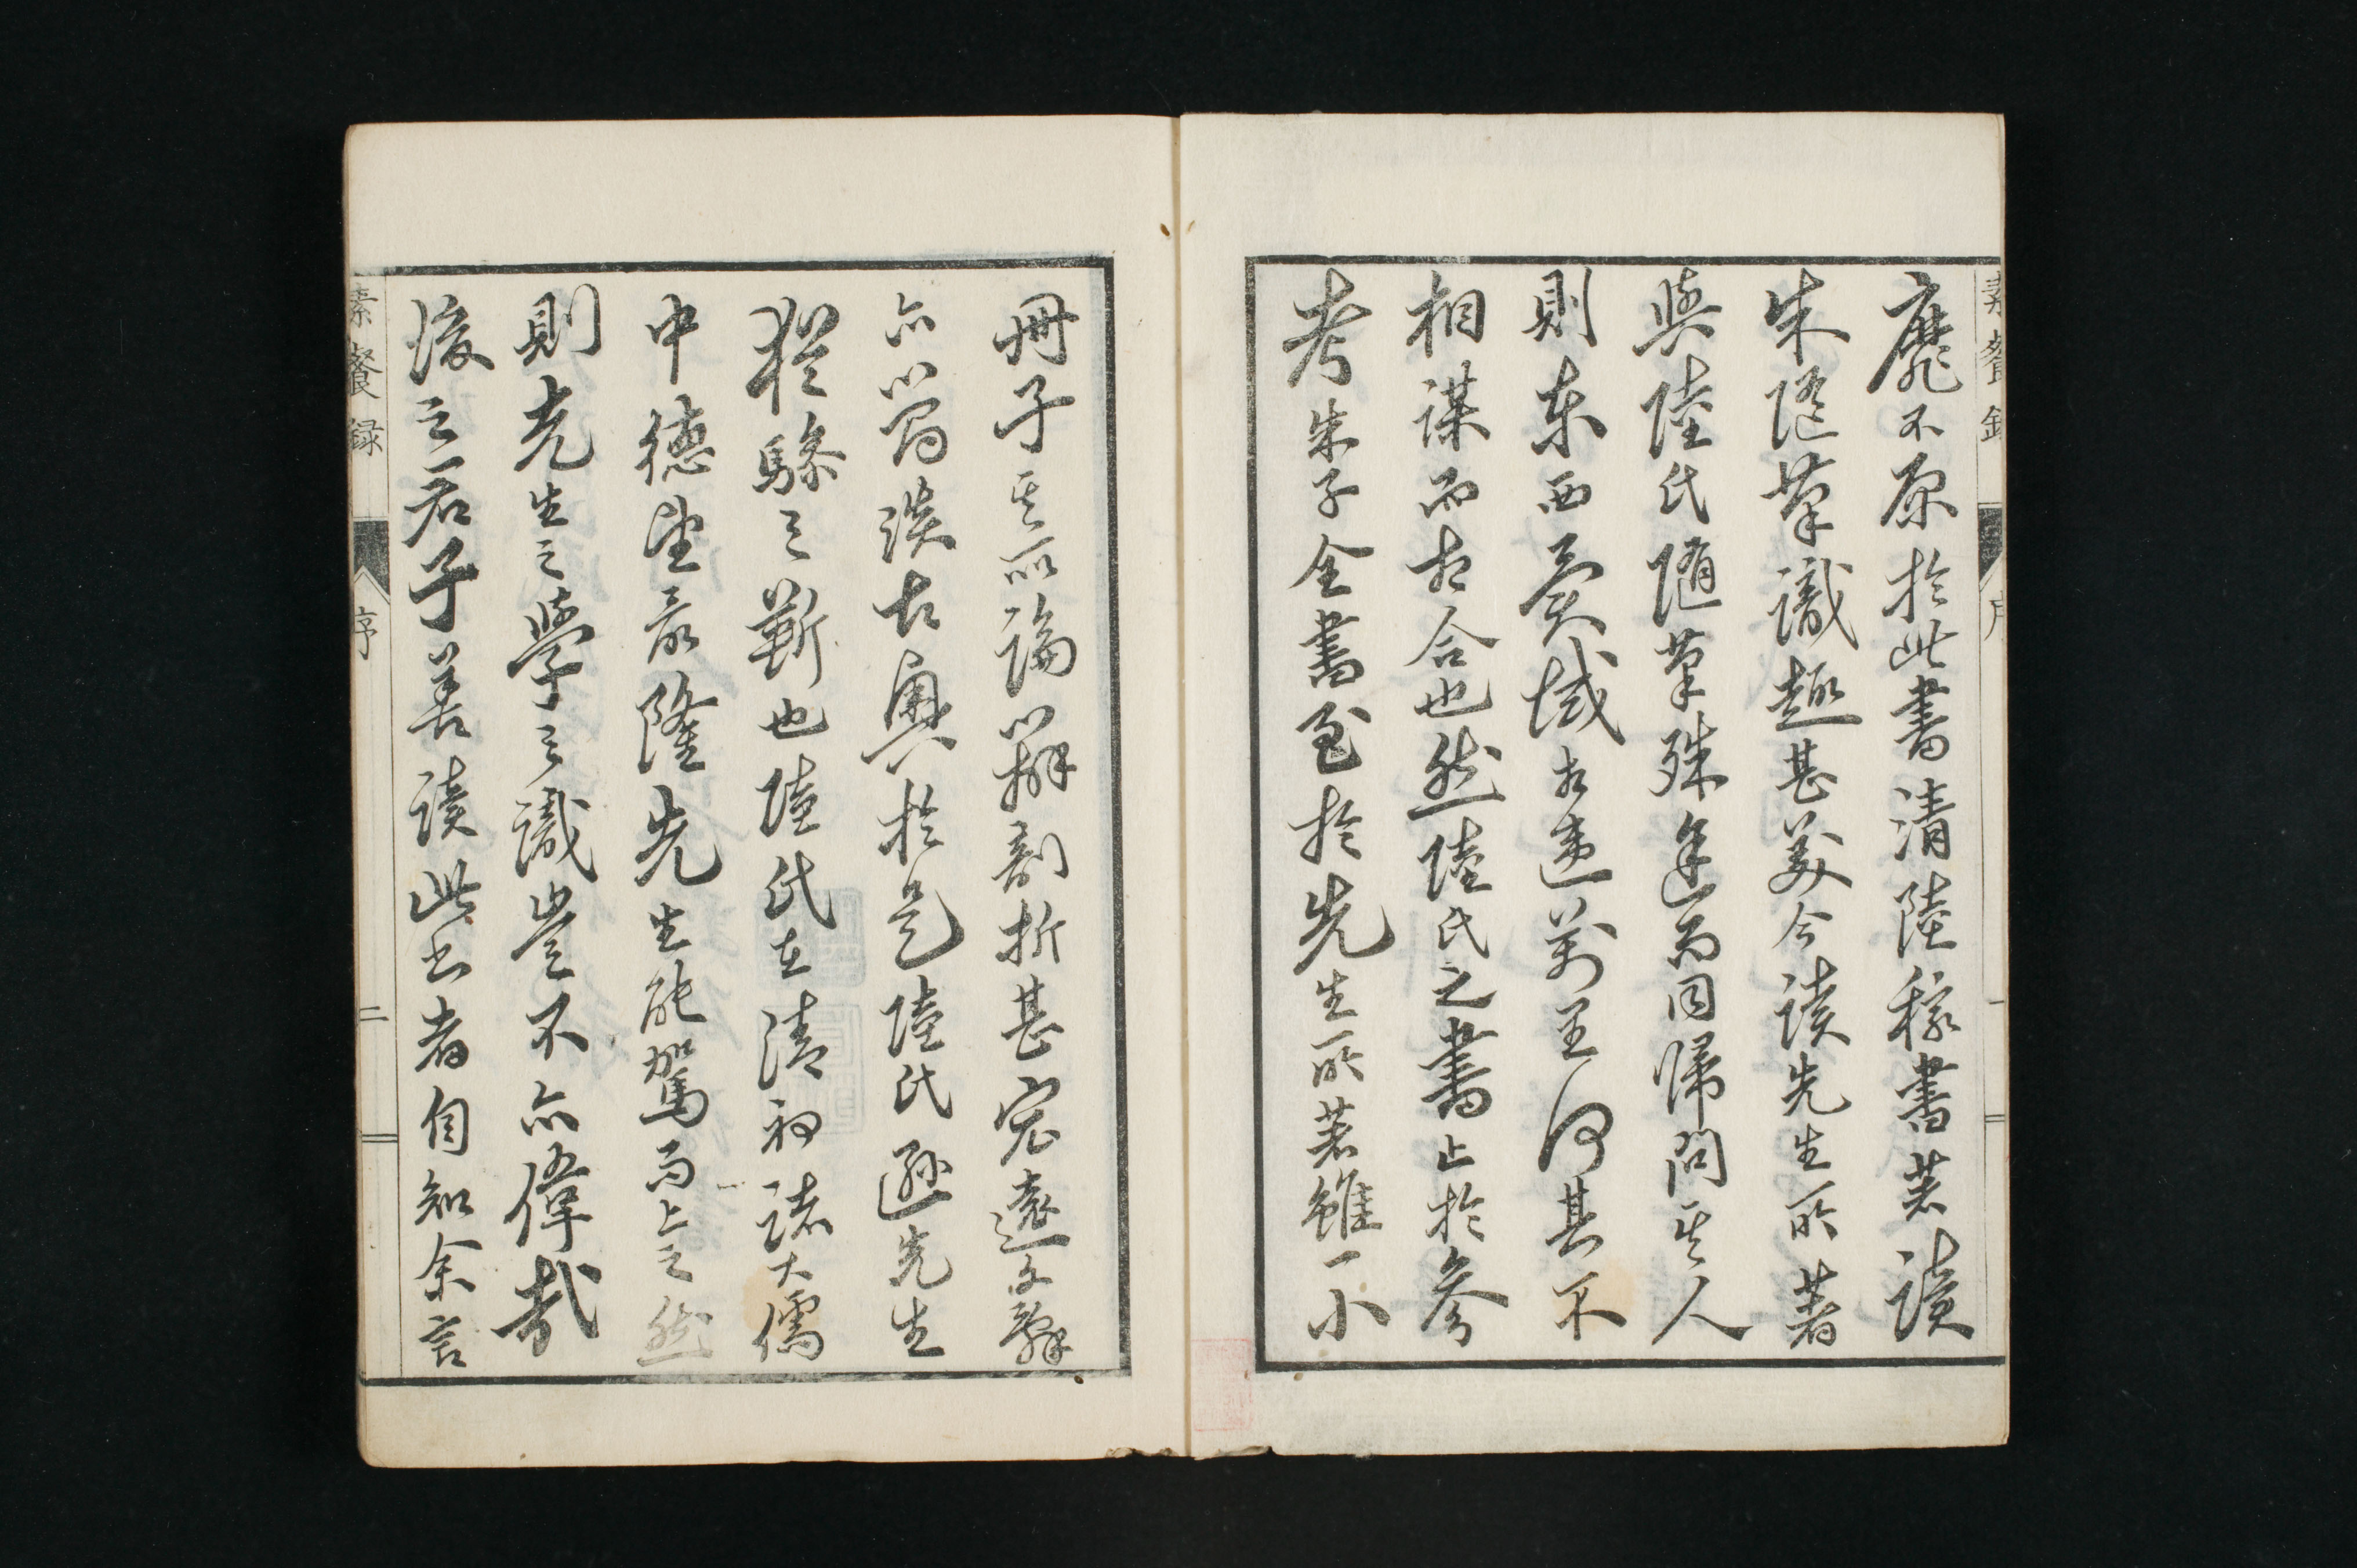 素餐錄
序
靡不原於此書清陸稼書著讀
朱隨筆識趣甚美今讀先生所著
與陸氏隨筆殊途而同歸問其人
則東西異域相違萬里何其不
相謀而相合也然陸氏之書止於參
考朱子全書至於先生所著雖一小
冊子其所論辨剖析甚宏遠文辭
亦簡淡古奧於是陸氏遜先生
猶驂之靳也陸氏在清初諸大儒
中德望最隆先生能駕而上之然
則先生之學之識豈不亦偉哉
後之君子善讀此書者自知余言
素餐録
序
二